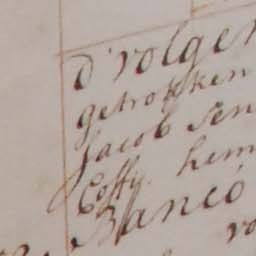 d'volgen
getrokken
Jacob Sen
Coffy. hem
Banco
vo